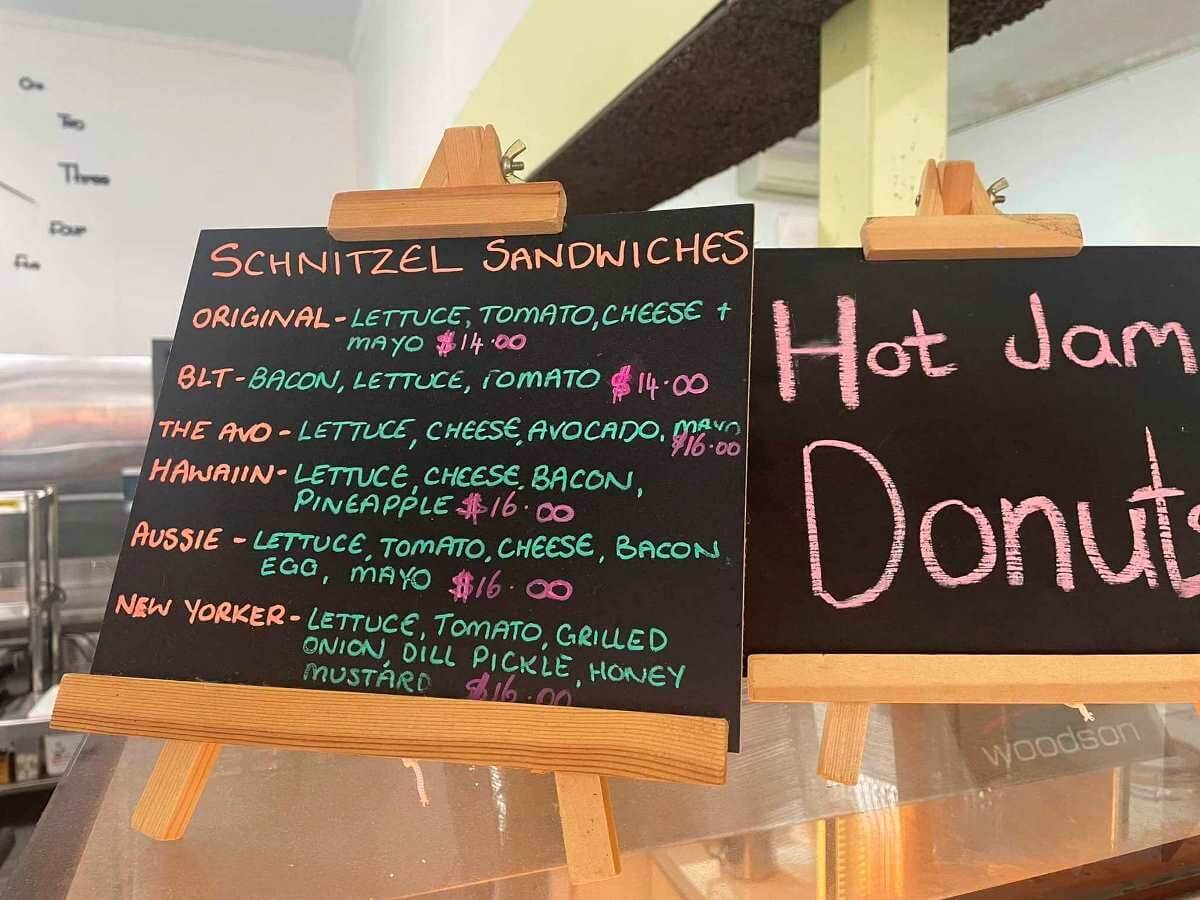 One
Two
Three
Four
Five
SCHNITZEL SANDWICHES
ORIGINAL - LETTUCE, TOMATO, CHEESE +
MAYO $14.00
BLT - BACON, LETTUCE, TOMATO $14.00
THE AVO - LETTUCE, CHEESE, AVOCADO, MAYO
$16.00
HAWAIIN - LETTUCE, CHEESE, BACON,
PINEAPPLE $16.00
AUSSIE - LETTUCE, TOMATO, CHEESE, BACON
EGG, MAYO $16.00
NEW YORKER - LETTUCE, TOMATO, GRILLED
ONION, DILL PICKLE, HONEY
MUSTARD $16.00
Hot Jam
Donuts
woodson